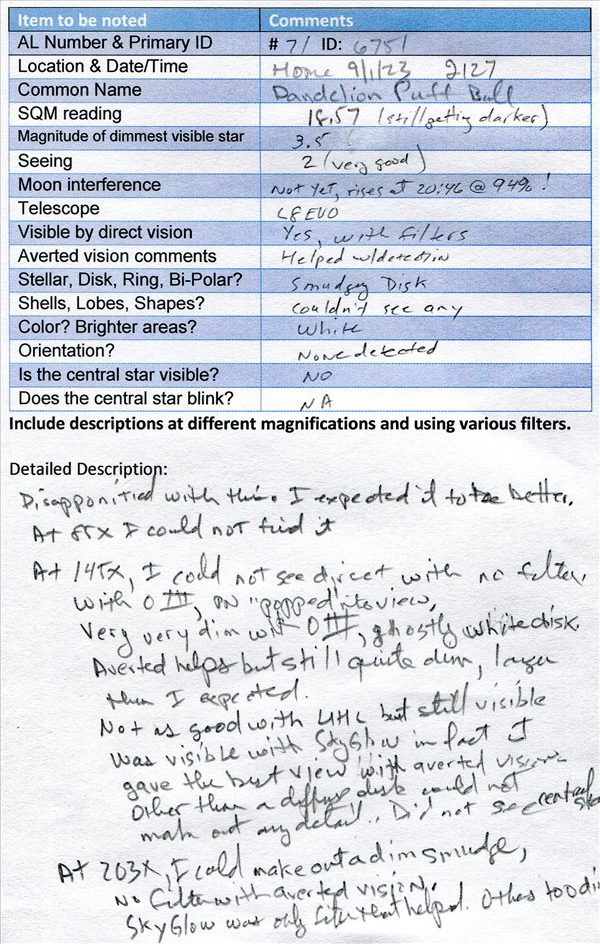 Item to be noted Comments
AL Number & Primary ID # 71 ID: 6751
Location & Date/Time Home 9/1/23 2127
Common Name Dandelion Puff Ball
SQM reading 18.57 (still getting darker)
Magnitude of dimmest visible star 3.5
Seeing 2 (very good)
Moon interference Not yet, rises at 20:46 @ 94%!
Telescope C8 EVO
Visible by direct vision Yes, with filters
Averted vision comments Helped w/detection
Stellar, Disk, Ring, Bi-Polar? Smudgey Disk
Shells, Lobes, Shapes? Couldn't see any
Color? Brighter areas? White
Orientation? None detected
Is the central star visible? NO
Does the central star blink? NA
Include descriptions at different magnifications and using various filters.
Detailed Description:
Disapponitied with this. I expected it to be better.
At 85X I could not find it
At 145X, I could not see direct with no filter,
with O III, PN "popped" into view,
Very very dim with O III, ghostly white disk.
Averted helps but still quite dim, larger
than I expected.
Not as good with UHC but still visible
Was visible with SkyGlow in fact it
gave the best view with averted vision.
Other than a diffuse disk could not
make out any detail. Did not see central
At 203X, I could make out a dim smudge,
No filter with averted vision.
SkyGlow was only filter that helped. Others too